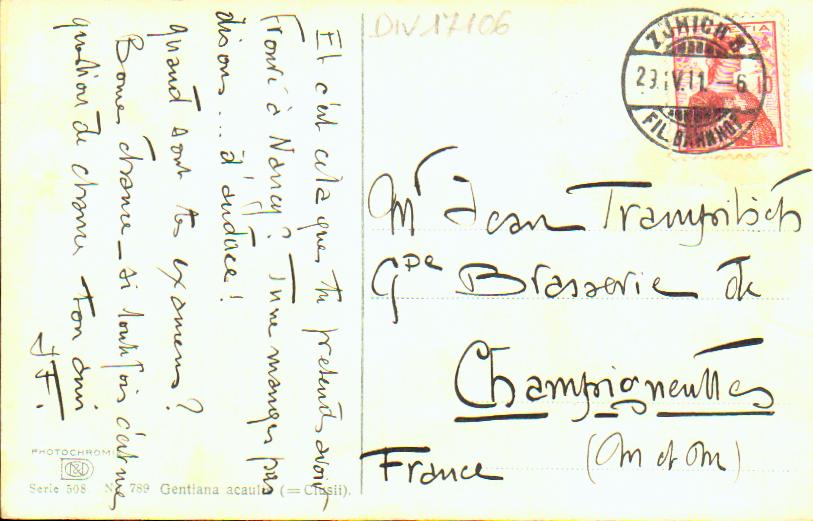 Et c'est cela que tu prétends avoir
trouvé à Nancy ? Tu ne manques pas
disons ... d'audace !
quand sont tes examens ?
Bonne chance _ si toutefois c'est une
question de chance ton ami
JF.
DIV 17106
ZÜRICH 8
29.IV.11. -6
FIL. BAHNHOF
10
Mr Jean Trampitsch
Gde Brasserie de
Champigneulles
(M et M)
France
PHOTOCHROM
Serie 508. No. 789 Gentiana acaulis (= Clusii).